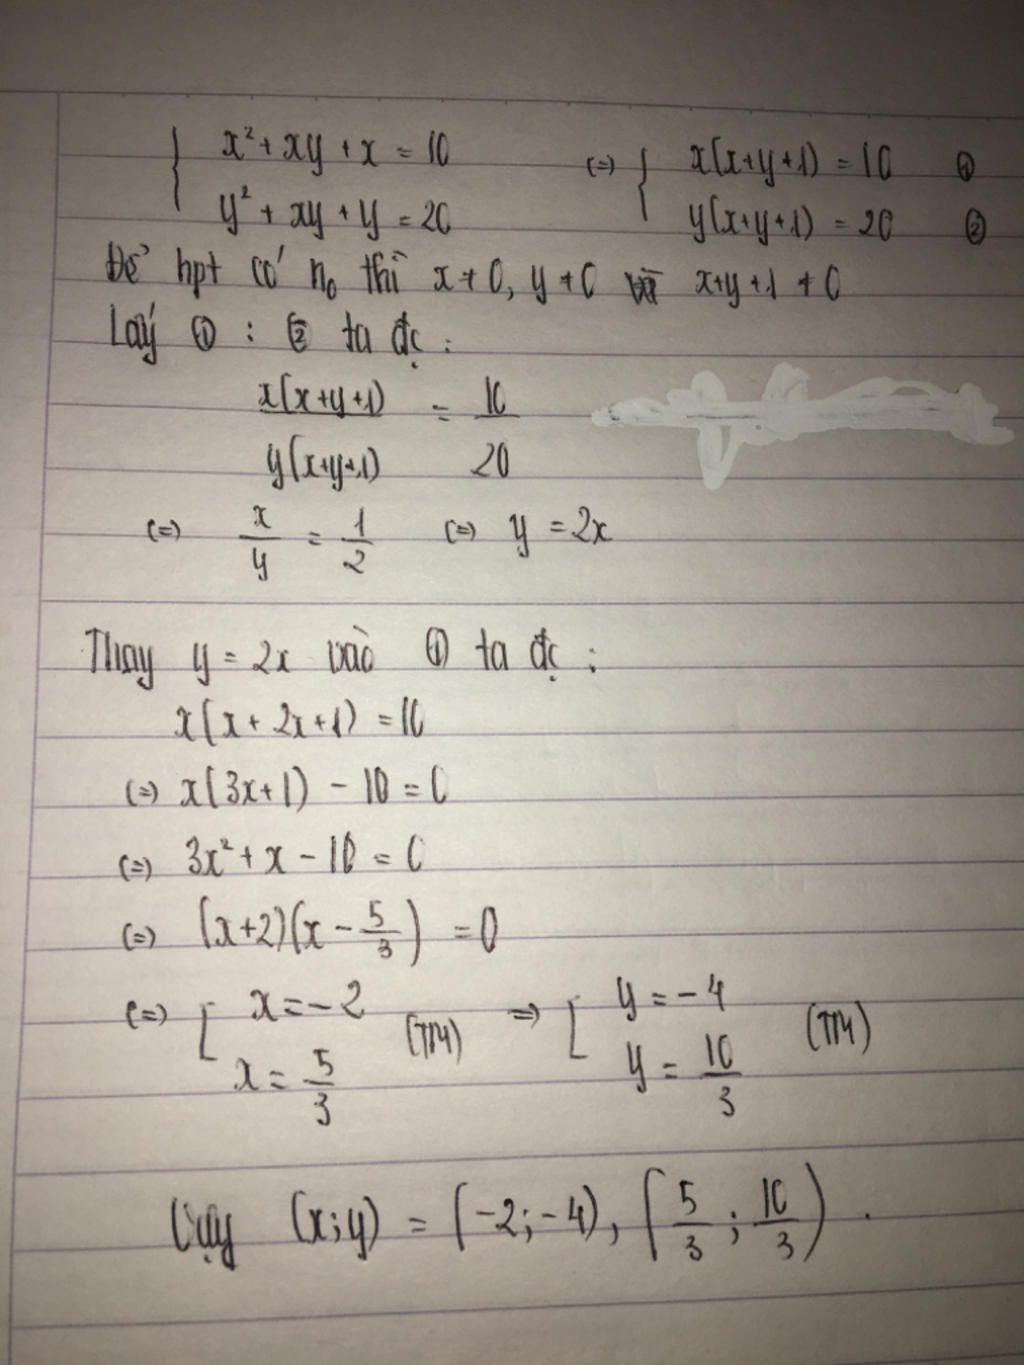 { x² + xy + x = 10 (=) { x(x+y+1) = 10 ①
y² + xy + y = 20 y(x+y+1) = 20 ②
Để hpt có n₀ thì x ≠ 0, y ≠ 0 và x+y+1 ≠ 0
Lấy ① : ② ta đc :
x(x+y+1) / y(x+y+1) = 10 / 20
(=) x/y = 1/2 (=) y = 2x
Thay y = 2x vào ① ta đc :
x(x + 2x+1) = 10
(=) x(3x+1) - 10 = 0
(=) 3x² + x - 10 = 0
(=) (x+2)(x - 5/3) = 0
(=) [ x = -2 (TM) => [ y = -4 (TM)
x = 5/3 y = 10/3
Vậy (x;y) = (-2; -4), (5/3 ; 10/3) .